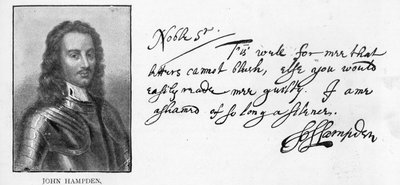 Noble Sr.
T'is well for mee that
letters cannot blush, else you would
easily reade mee guilty. I am
ashamed of so long a silence.
Jo Hampden
JOHN HAMPDEN.